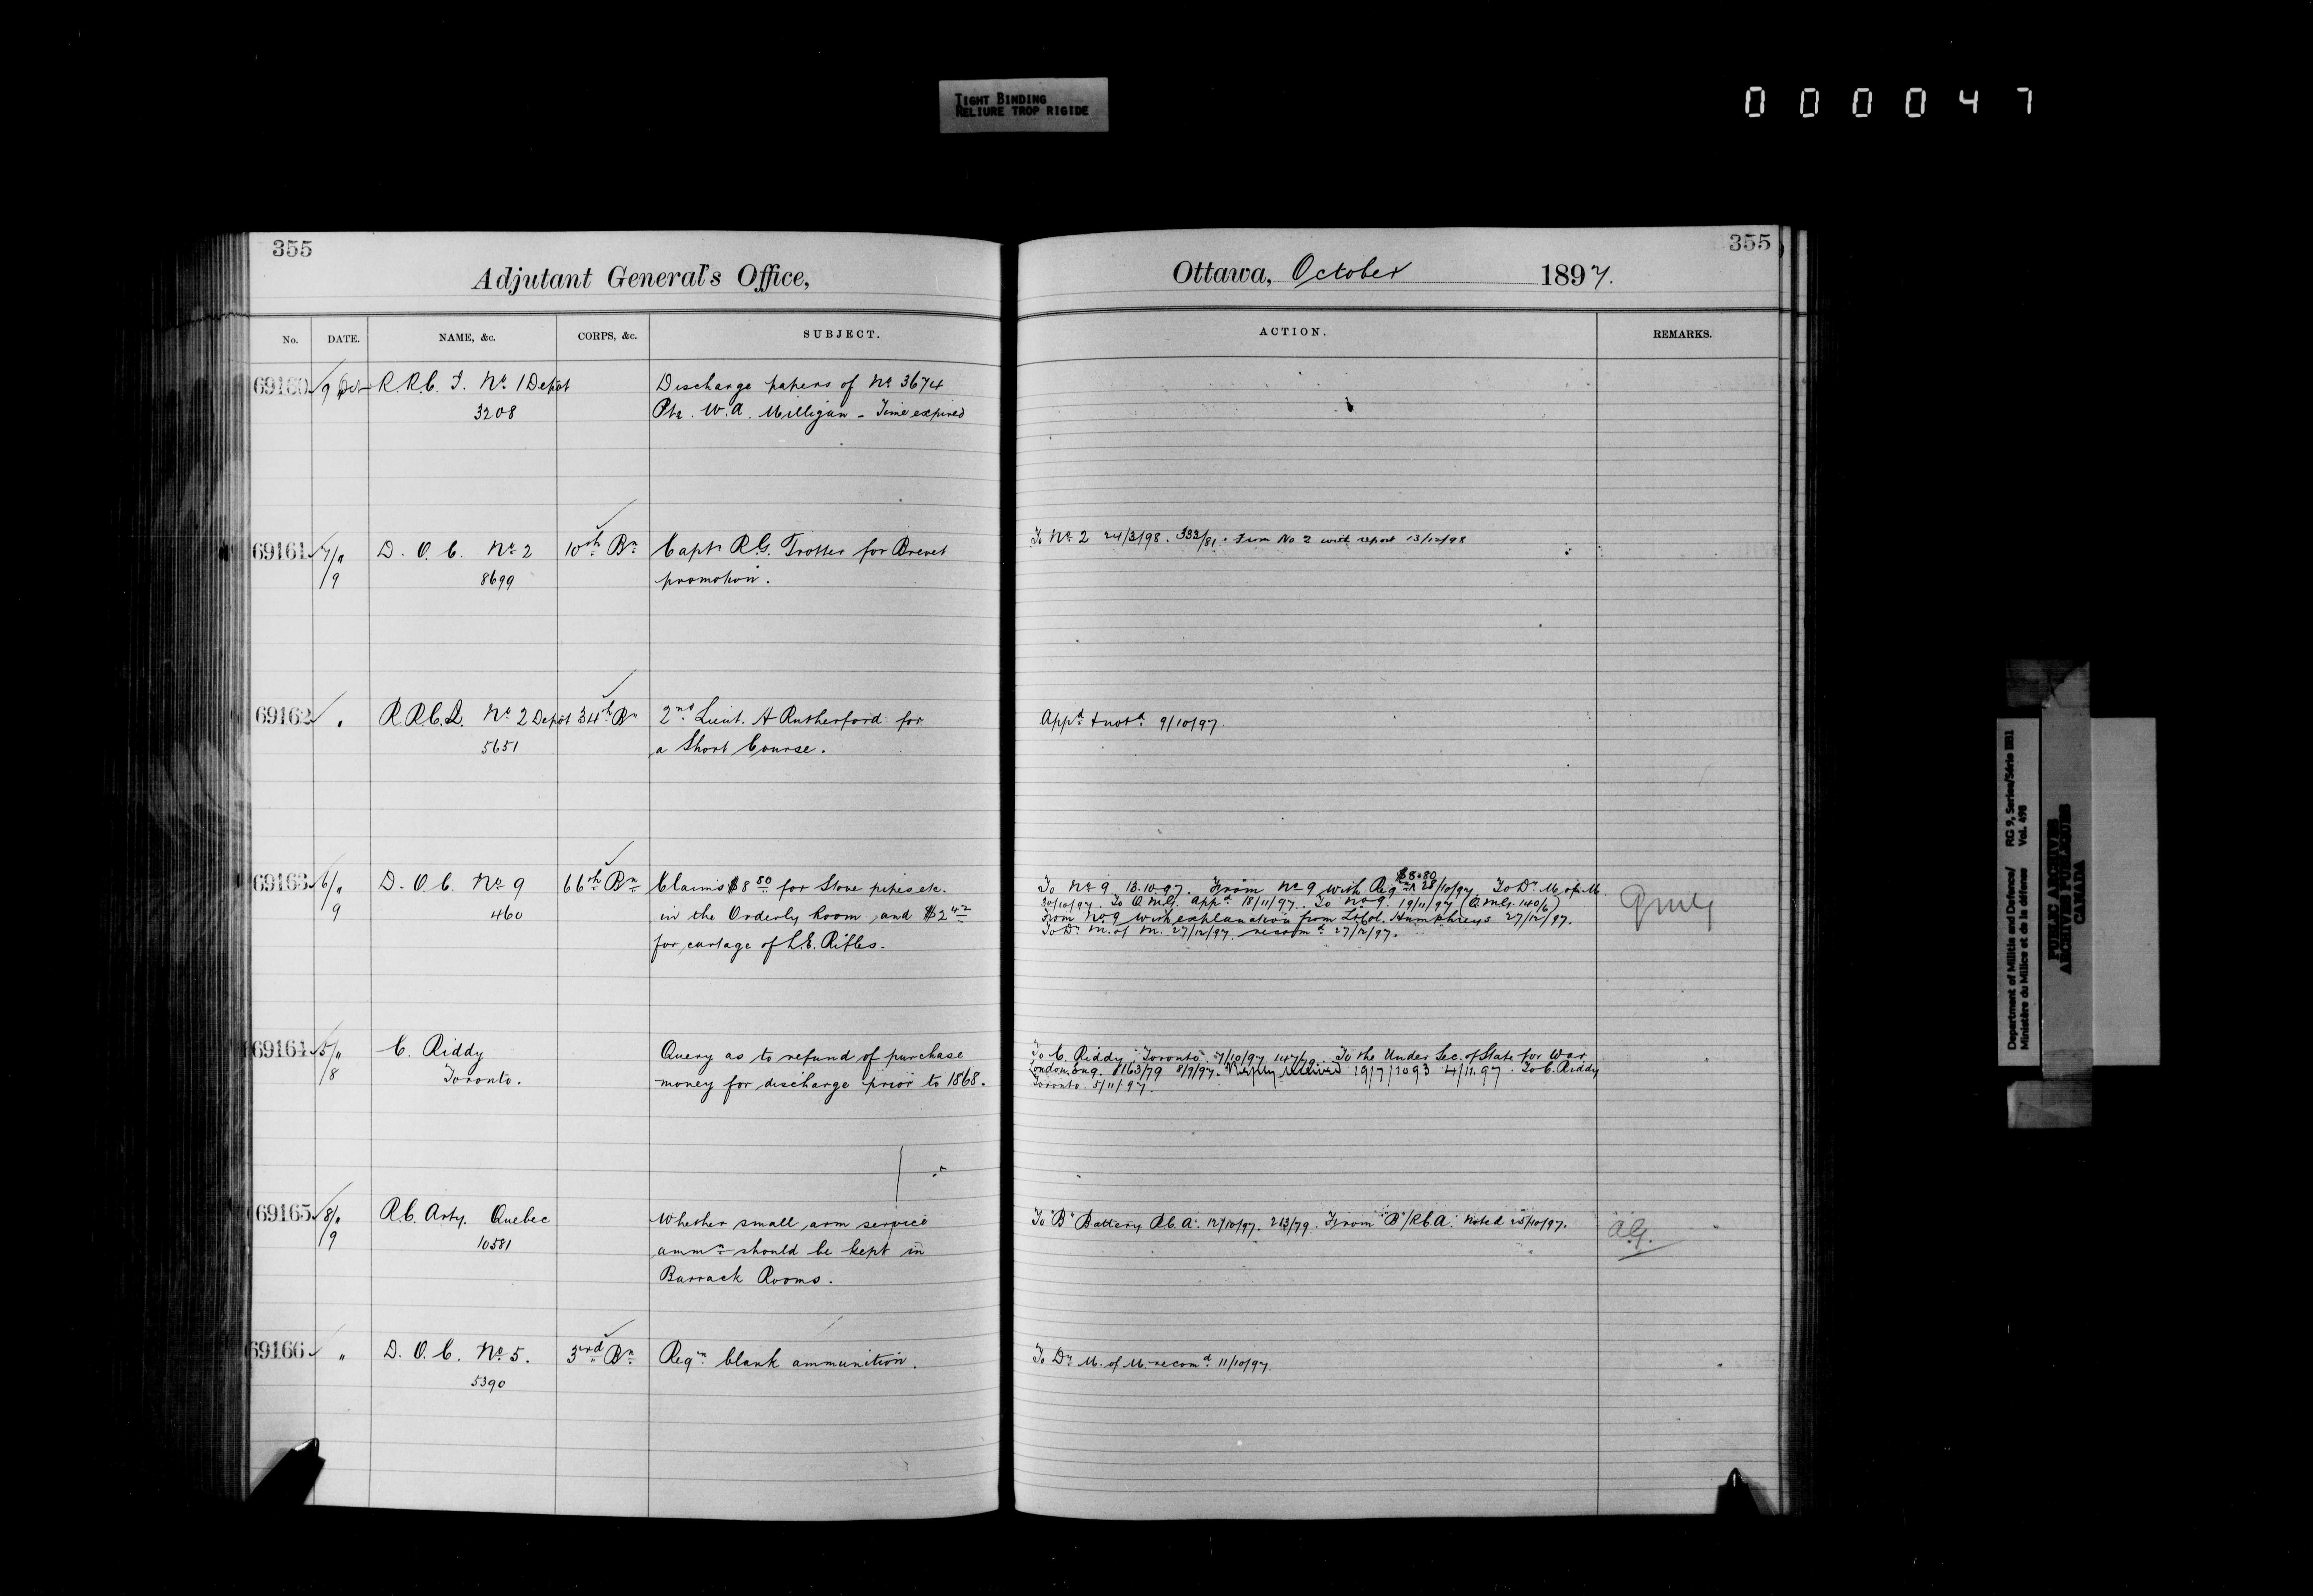 TIGHT BINDING
RELIURE TROP RIGIDE
000047
355
Adjutant General's Office,
No. DATE. NAME, &c. CORPS, &c. SUBJECT.
69160 9 Oct R.R.C.I. No 1 Depôt Discharge papers of No 3674
3208 Pte. W.A. Milligan - Time expired
69161 7/" D.O.C. No 2 10th Bn Capt. R.G. Trotter for Brevet
/9 8699 promotion.
69162 " R.R.C.D. No 2 Depôt 34th Bn 2nd Lieut. A Rutherford for
5651 a Short Course.
69163 6/" D.O.C. No 9 66th Bn Claims $8 80 for Stove pipes etc.
/9 460 in the Orderly Room, and $2 42
for cartage of L.E. Rifles.
69164 5/" C. Riddy Query as to refund of purchase
/8 Toronto. money for discharge prior to 1868.
69165 8/" R.C. Arty. Quebec Whether small arm service
/9 10581 ammn should be kept in
Barrack Rooms.
69166 " D.O.C. No 5. 3rd Bn Reqn blank ammunition.
5390
355
Ottawa, October 1897.
ACTION. REMARKS.
To No 2 24/3/98. 333/81. From No 2 with report 13/12/98
Appd & notd 9/10/97
$8.80
To No 9 13.10.97. From No 9 with Reqn 28/10/97. To Dy M. of M.
30/10/97. To QMG. appd 18/11/97. To No 9. 19/11/97 (QMG. 140/6)
From No 9 with explanation from Lt Col. Humphreys 27/12/97.
To Dy M. of M. 27/12/97. recomd 27/12/97.
QMG
To C. Riddy, Toronto. 7/10/97 147/79. To the Under Sec. of State for War
London, Eng. 8163/79 8/9/97. received 19/7/1093 4/11.97. To C. Riddy
Toronto 5/11/97.
To "B" Battery R.C.A. 12/10/97. 213/79. From "B"/R.C.A. noted 25/10/97.
A.G.
To Dy M. of M. recomd 11/10/97.
Department of Militia and Defence/
Ministère du Milice et de la défense
RG 9, Series/Série IIB1
Vol. 498
PUBLIC ARCHIVES
ARCHIVES PUBLIQUES
CANADA